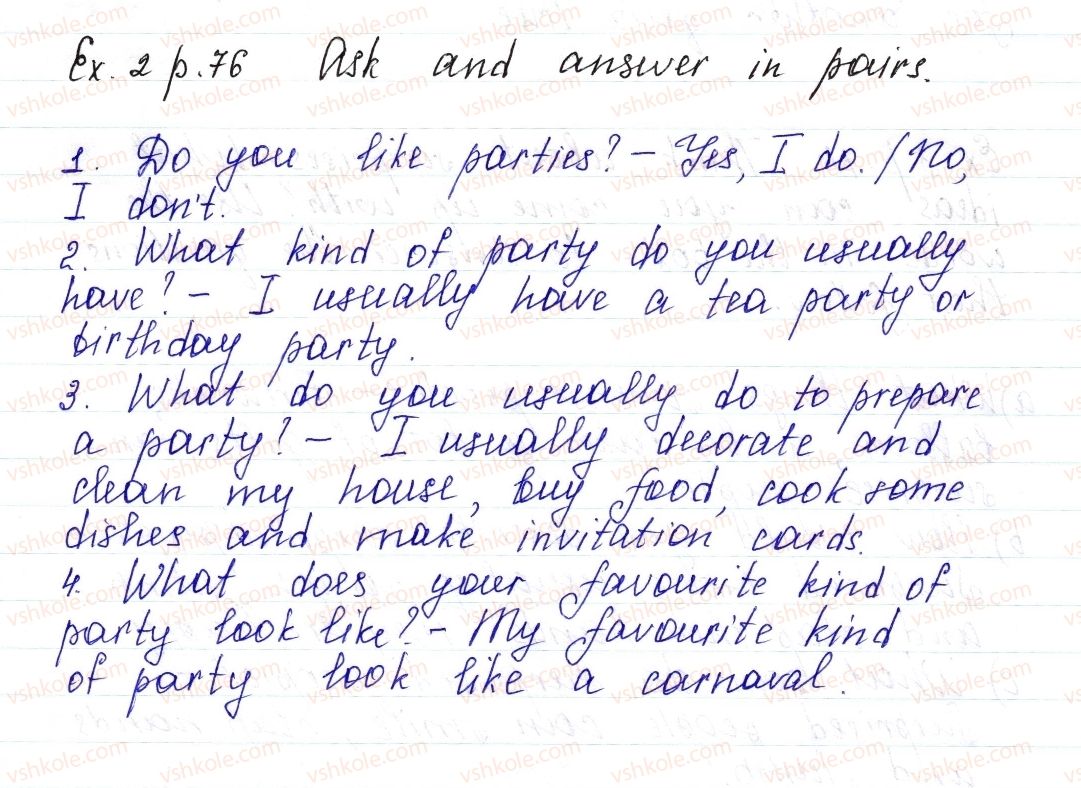 Ex. 2 p. 76 Ask and answer in pairs.
1. Do you like parties? – Yes, I do. / No,
I don't.
2. What kind of party do you usually
have? – I usually have a tea party or
birthday party.
3. What do you usually do to prepare
a party? – I usually decorate and
clean my house, buy food, cook some
dishes and make invitation cards.
4. What does your favourite kind of
party look like? – My favourite kind
of party look like a carnaval.